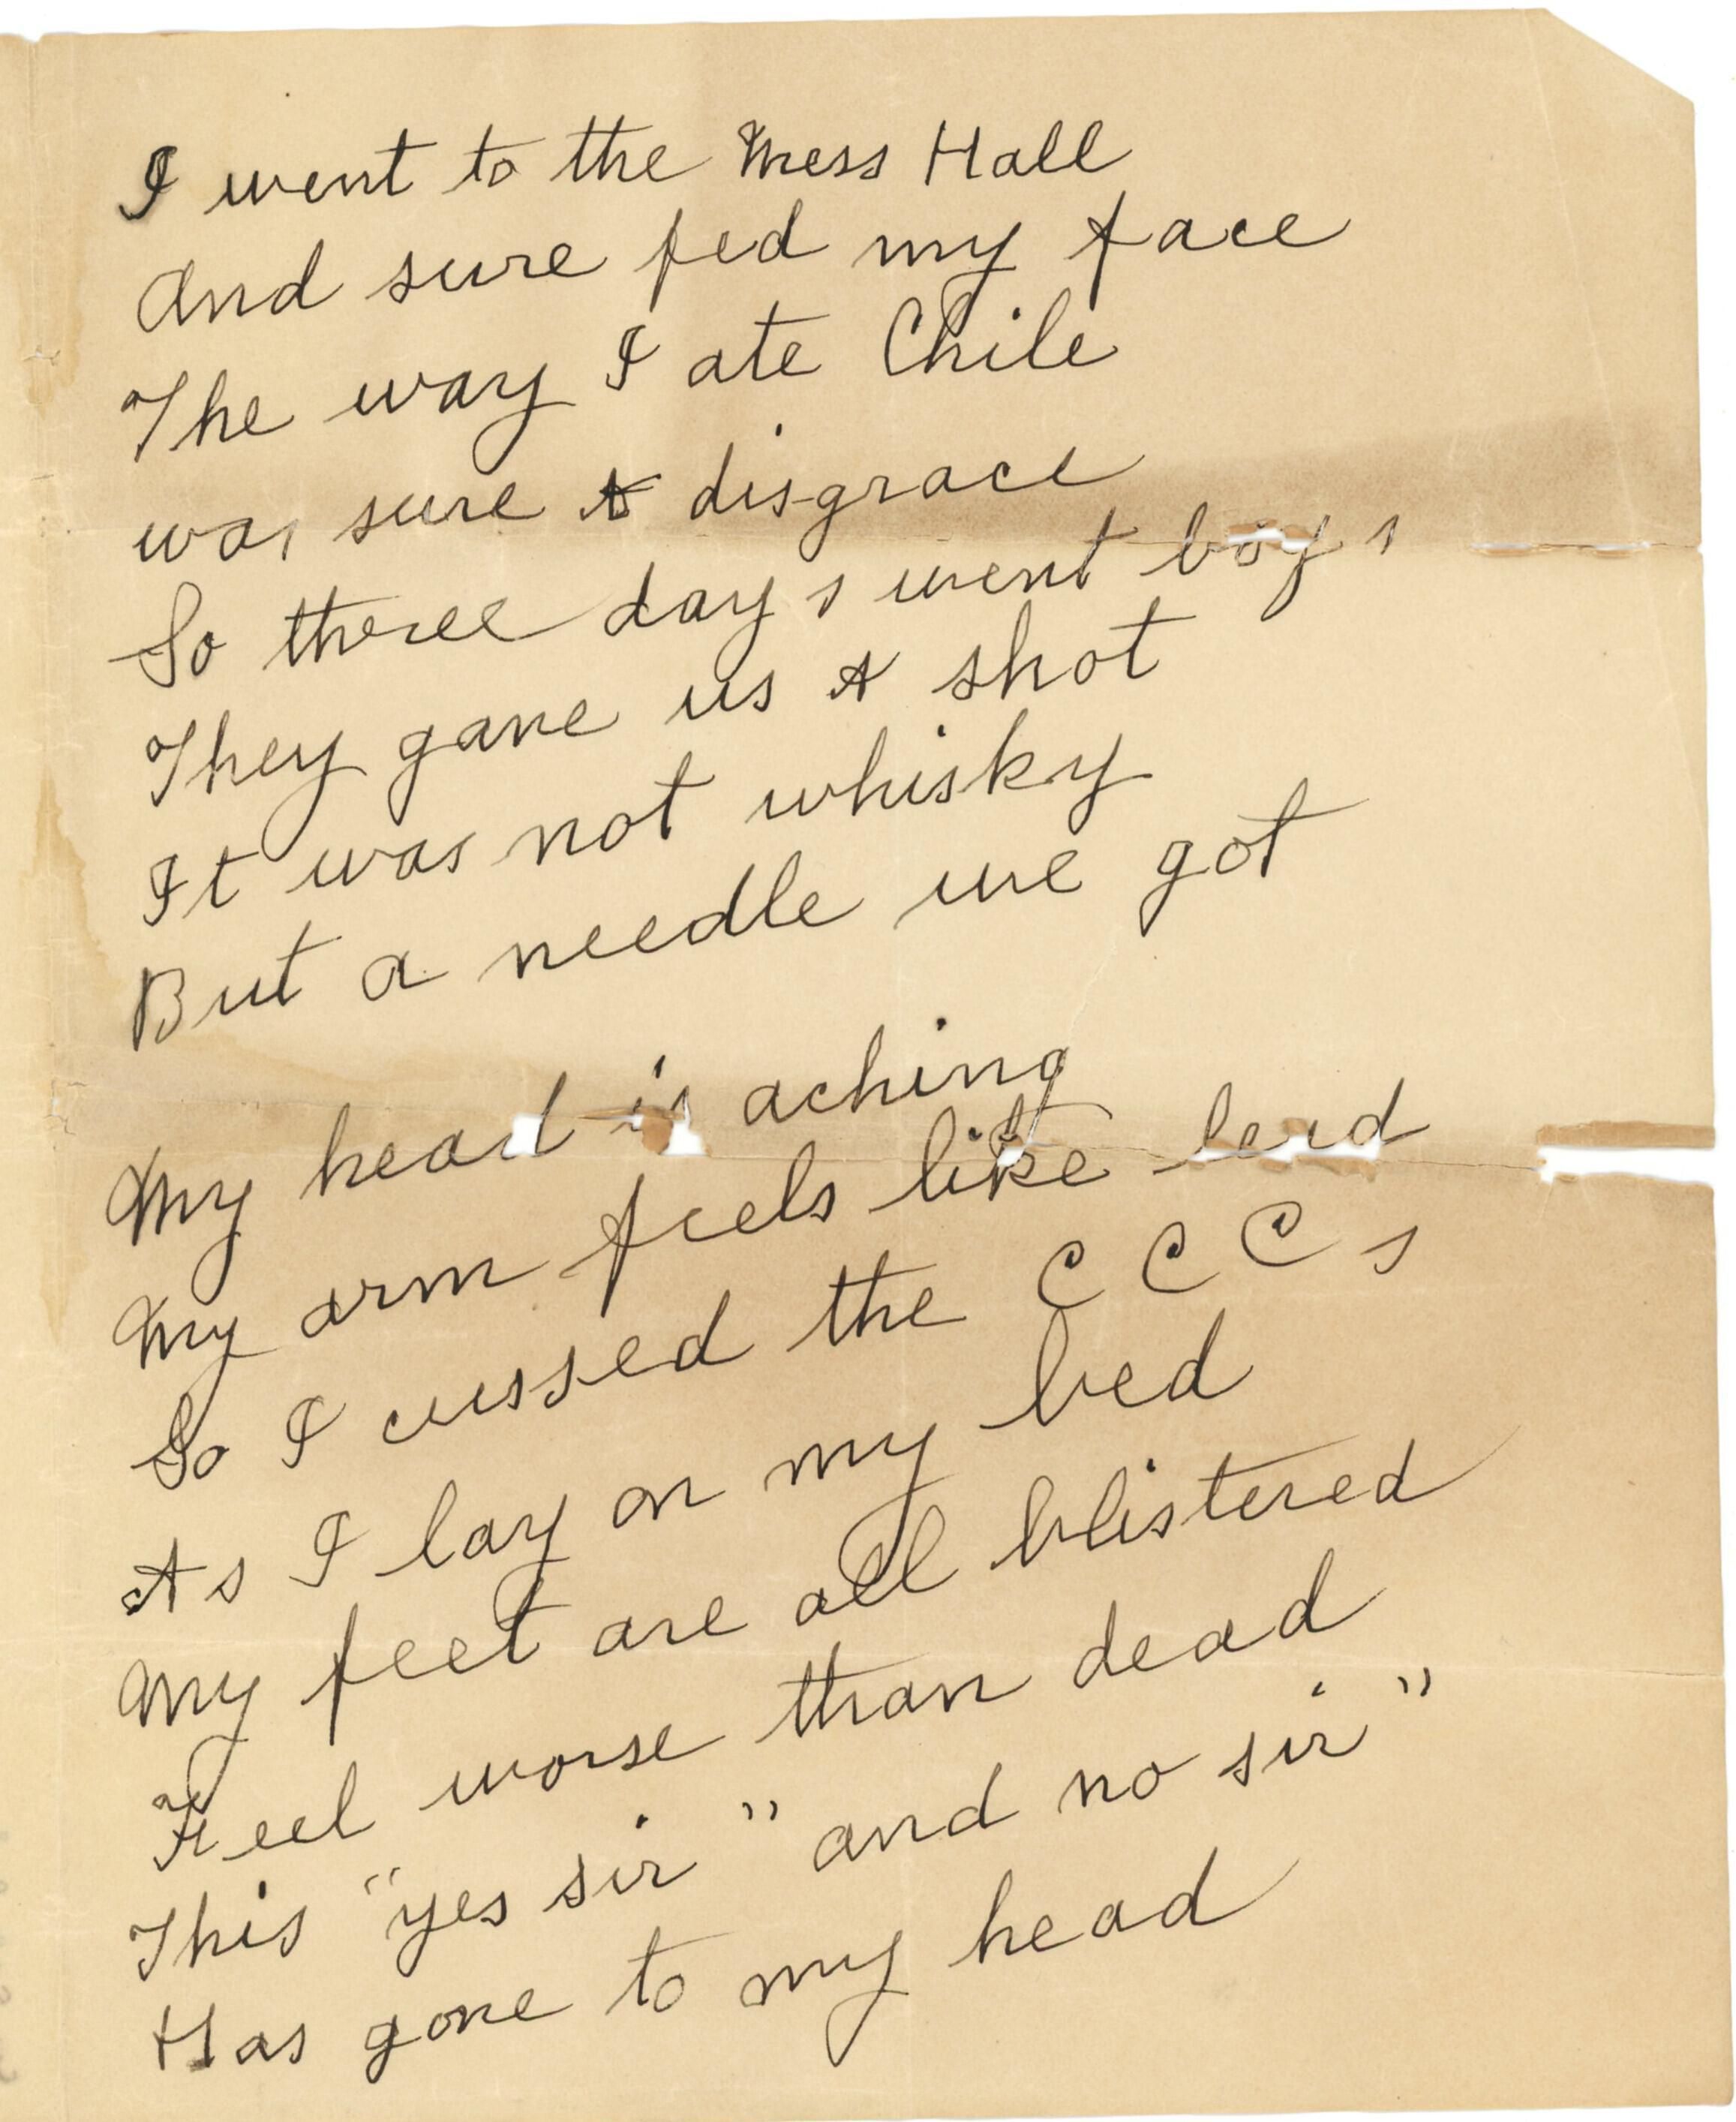 I went to the Mess Hall
And sure fed my face
The way I ate Chile
was sure A disgrace
So three days went boys
They gave us A shot
It was not whisky
But a needle we got
My head is aching
My arm feels like lead
So I cussed the C C C s
As I lay on my bed
My feet are all blistered
Feel worse than dead
This "yes sir" and no sir"
Has gone to my head